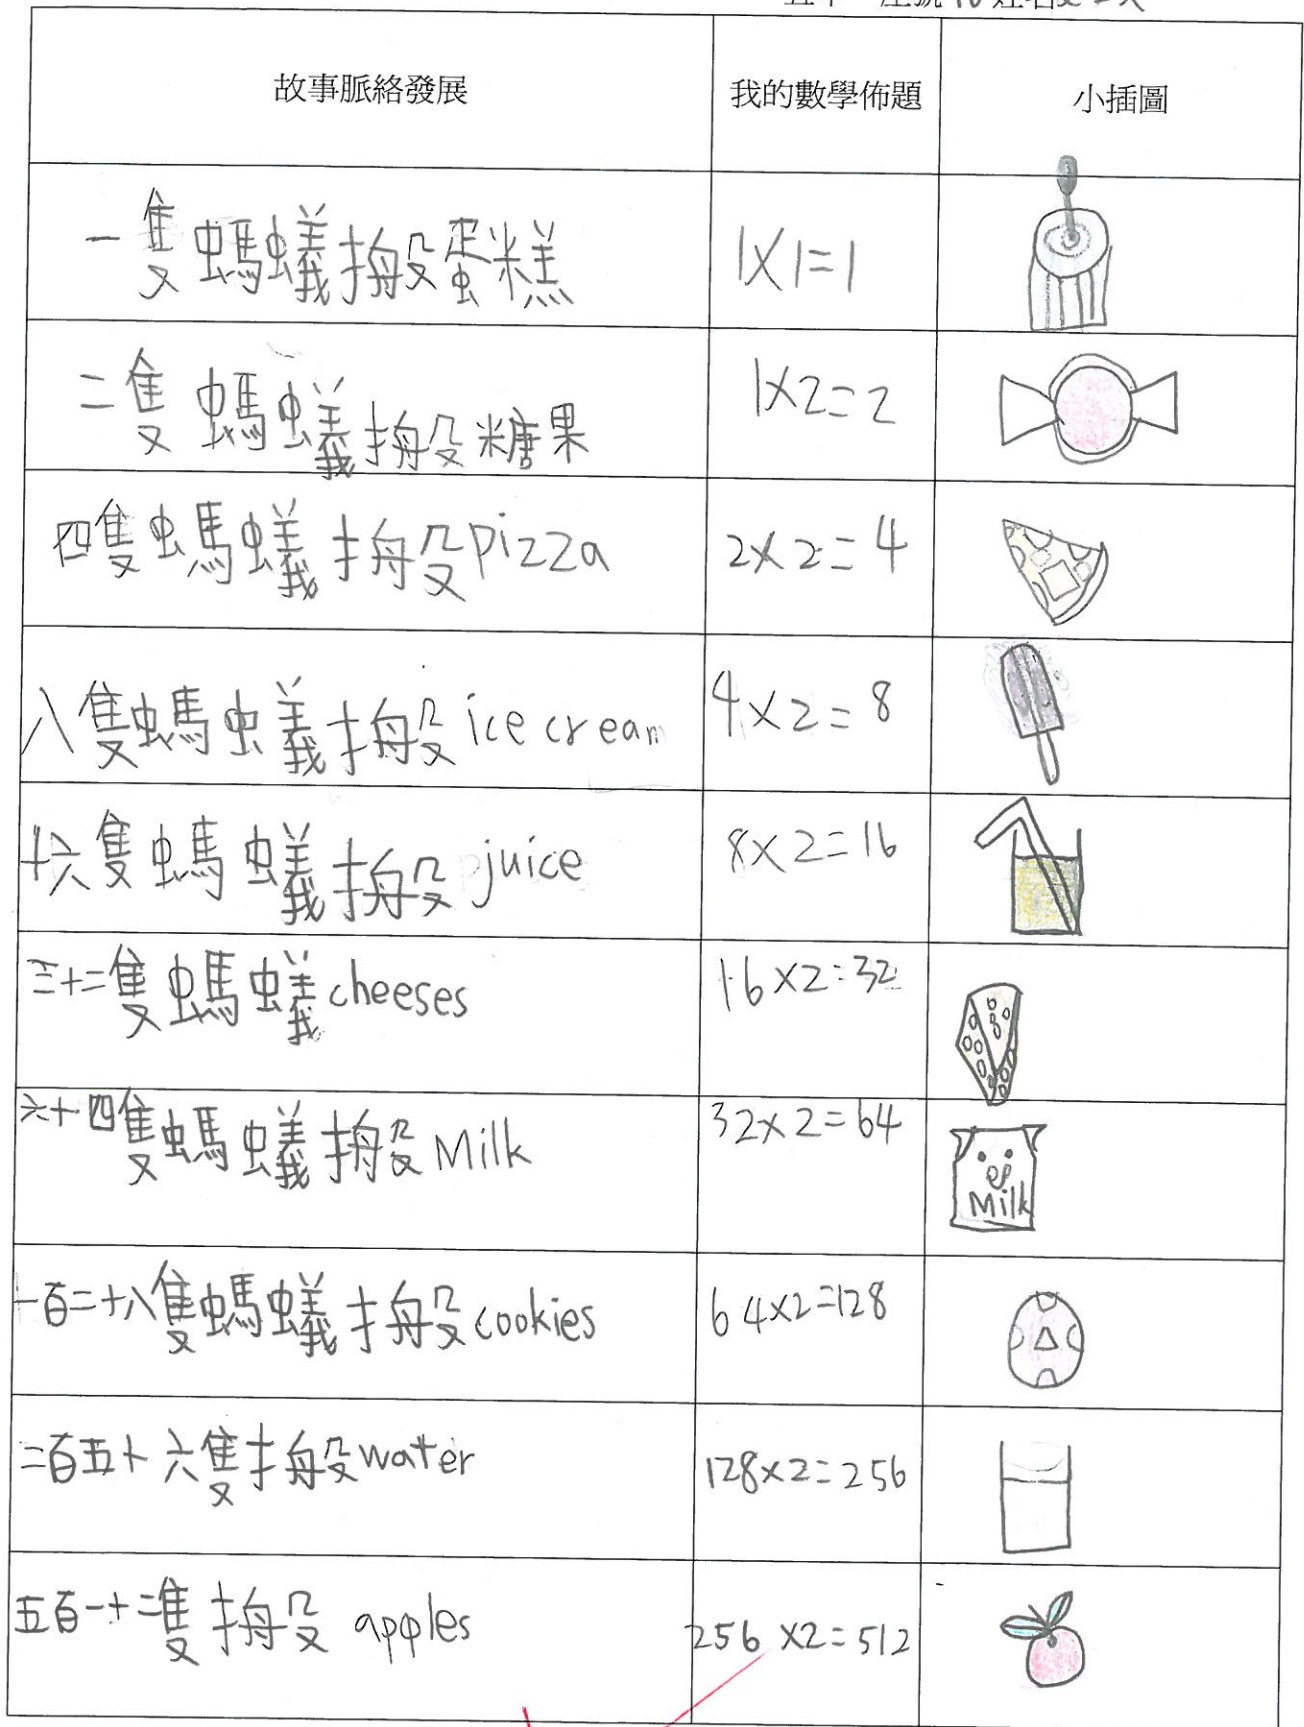 故事脈絡發展 我的數學佈題 小插圖
一隻螞蟻搬蛋糕 1×1=1
二隻螞蟻搬糖果 1×2=2
四隻螞蟻搬pizza 2×2=4
八隻螞蟻搬ice cream 4×2=8
十六隻螞蟻搬juice 8×2=16
三十二隻螞蟻cheeses 16×2=32
六十四隻螞蟻搬Milk 32×2=64
Milk
一百二十八隻螞蟻搬cookies 64×2=128
二百五十六隻搬water 128×2=256
五百一十二隻搬 apples 256×2=512